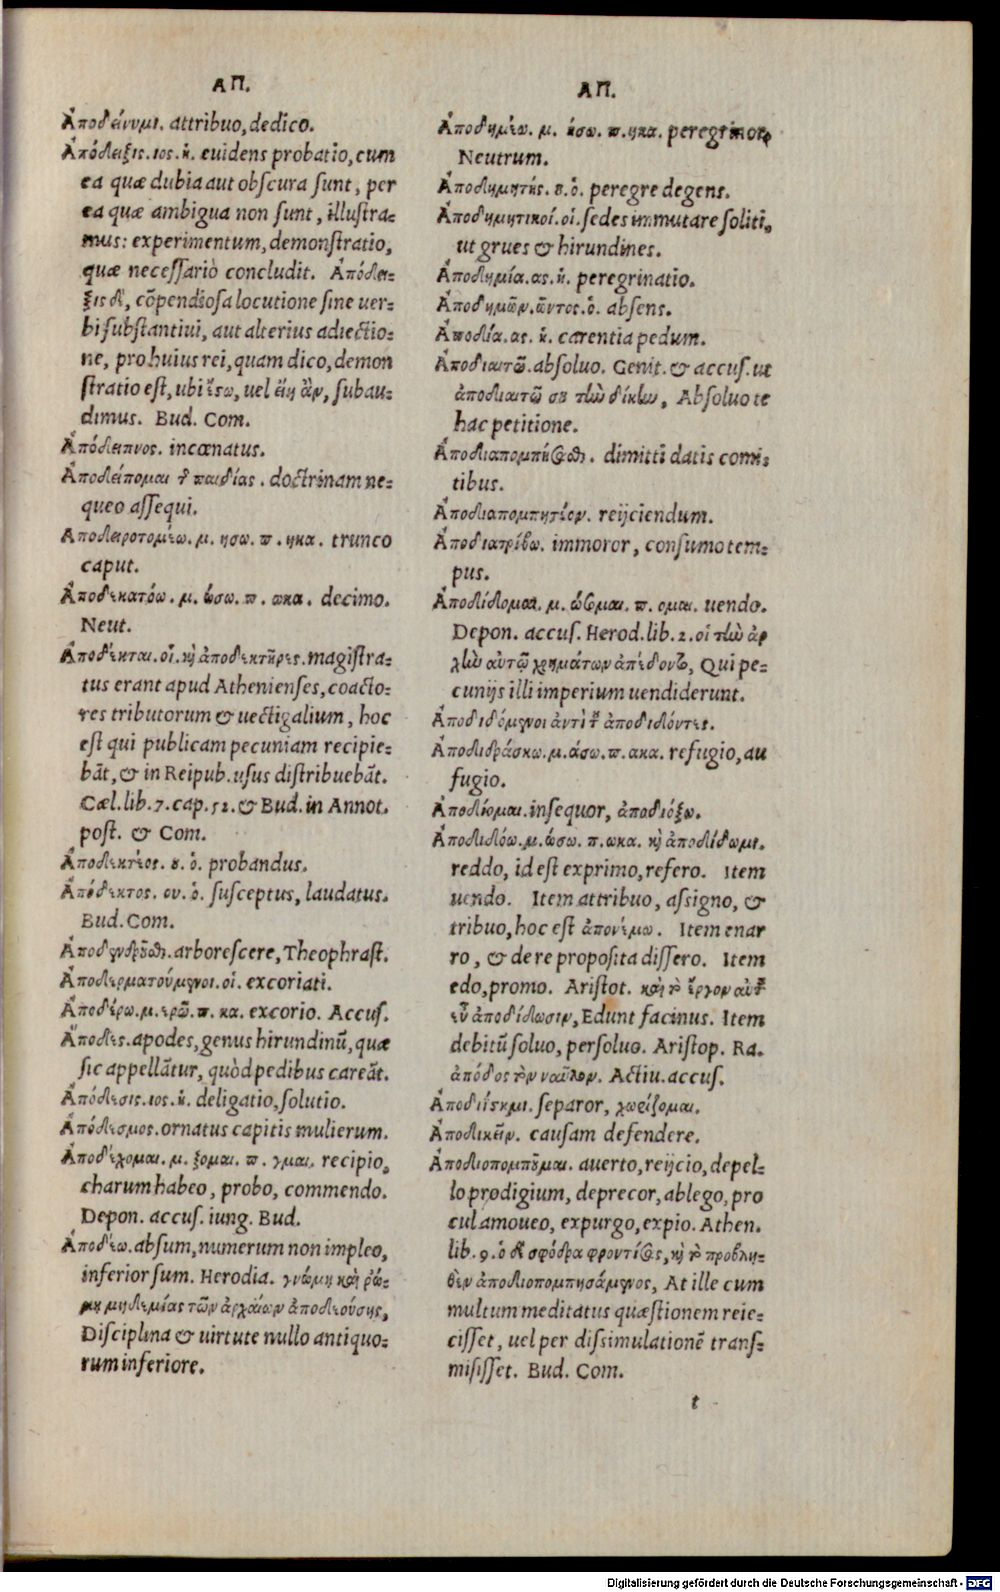 ΑΠ.
Ἀποδείνυμι. attribuo, dedico.
Ἀπόδειξις. ιος. ἡ. euidens probatio, cum
ea quæ dubia aut obscura sunt, per
ea quæ ambigua non sunt, illustra-
mus: experimentum, demonstratio,
quæ necessariò concludit. Ἀπόδει-
ξις δ', cõpendiosa locutione sine uer-
bi substantiui, aut alterius adiectio-
ne, pro huius rei, quam dico, demon
stratio est, ubi ἔστω, uel εἴη ἂν, subau-
dimus. Bud. Com.
Ἀπόδειπνος. incœnatus.
Ἀποδείπομαι τ παιδίας. doctrinam ne-
queo assequi.
Ἀποδειροτομέω. μ. ησω. π. ηκα. trunco
caput.
Ἀποδεκατόω. μ. ώσω. π. ωκα. decimo.
Neut.
Ἀποδέκται. οἱ. καὶ ἀποδεκτῆρες. magistra-
tus erant apud Athenienses, coacto-
res tributorum & uectigalium, hoc
est qui publicam pecuniam recipie-
bãt, & in Reipub. usus distribuebãt.
Cæl. lib. 7. cap. 52. & Bud. in Annot.
post. & Com.
Ἀποδεκτέος. ου. ὁ. probandus.
Ἀπόδεκτος. ου. ὁ. susceptus, laudatus.
Bud. Com.
Ἀποδενδροῦσθαι. arborescere, Theophrast.
Ἀποδερματούμενοι. οἱ. excoriati.
Ἀποδέρω. μ. ερῶ. π. κα. excorio. Accus.
Ἄποδες. apodes, genus hirundinũ, quæ
sic appellãtur, quòd pedibus careãt.
Ἀπόδεσις. ιος. ἡ. deligatio, solutio.
Ἀπόδεσμος. ornatus capitis mulierum.
Ἀποδέχομαι. μ. ξομαι. π. γμαι. recipio,
charum habeo, probo, commendo.
Depon. accus. iung. Bud.
Ἀποδέω. absum, numerum non impleo,
inferior sum. Herodia. γνώμη καὶ ῥώ-
μη μηδεμίας τῶν ἀρχαίων ἀποδεούσης,
Disciplina & uirtute nullo antiquo-
rum inferiore.
ΑΠ.
Ἀποδημέω. μ. ήσω. π. ηκα. peregrinor,
Neutrum.
Ἀποδημητής. ου. ὁ. peregre degens.
Ἀποδημητικοί. οἱ. sedes immutare soliti,
ut grues & hirundines.
Ἀποδημία. ας. ἡ. peregrinatio.
Ἀποδημῶν. ῶντος. ὁ. absens.
Ἀποδία. ας. ἡ. carentia pedum.
Ἀποδιαιτῶ. absoluo. Genit. & accus. ut
ἀποδιαιτῶ σου τὴν δίκην, Absoluo te
hac petitione.
Ἀποδιαπομπή. dimitti datis comi-
tibus.
Ἀποδιαπομπητέον. reijciendum.
Ἀποδιατρίβω. immoror, consumo tem-
pus.
Ἀποδίδομαι. μ. ώσομαι. π. ομαι. uendo.
Depon. accus. Herod. lib. 2. οἱ τὴν ἀρ
χὴν αὐτῷ χρημάτων ἀπέδοντο, Qui pe-
cunijs illi imperium uendiderunt.
Ἀποδιδόμενοι ἀντὶ τοῦ ἀποδιδόντες.
Ἀποδιδράσκω. μ. άσω. π. ακα. refugio, au
fugio.
Ἀποδίομαι. insequor, ἀποδιόξω.
Ἀποδιδόω. μ. ώσω. π. ωκα. καὶ ἀποδίδωμι.
reddo, id est exprimo, refero. Item
uendo. Item attribuo, assigno, &
tribuo, hoc est ἀπονέμω. Item enar
ro, & de re proposita dissero. Item
edo, promo. Aristot. καὶ τὸ ἔργον αὐτοῦ
εὖ ἀποδίδωσιν, Edunt facinus. Item
debitũ soluo, persoluo. Aristop. Ra.
ἀπόδος τὸν ναῦλον. Actiu. accus.
Ἀποδιΐστημι. separor, χωρίζομαι.
Ἀποδικεῖν. causam defendere.
Ἀποδιοπομποῦμαι. auerto, reijcio, depel-
lo prodigium, deprecor, ablego, pro
cul amoueo, expurgo, expio. Athen.
lib. 9. ὁ δὲ σφόδρα φροντίσας, καὶ τὸ προβλη-
θὲν ἀποδιοπομπησάμενος, At ille cum
multum meditatus quæstionem reie-
cisset, uel per dissimulationẽ trans-
misisset. Bud. Com.
t
Digitalisierung gefördert durch die Deutsche Forschungsgemeinschaft - DFG